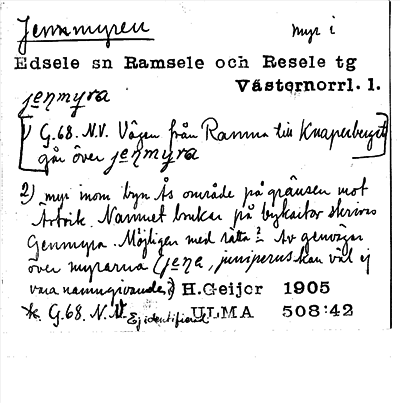 Jenmyren myr i
Edsele sn Ramsele och Resele tg
Västernorrl. l.
jenmyra
1) G.68. N.V. Vägen från Ramna till Knaperberget
går över jenmyra
2) myr inom byn Ås område på gränsen mot
Arbvik. Namnet brukar på bykartor skrivas
Genmyra. Möjligen med rätta? Av genvägar
över myrarna (jene, juniperus kan väl ej
vara namngivande?) H.Geijer 1905
* G.68. N.V. Ej identifierad ULMA 508:42